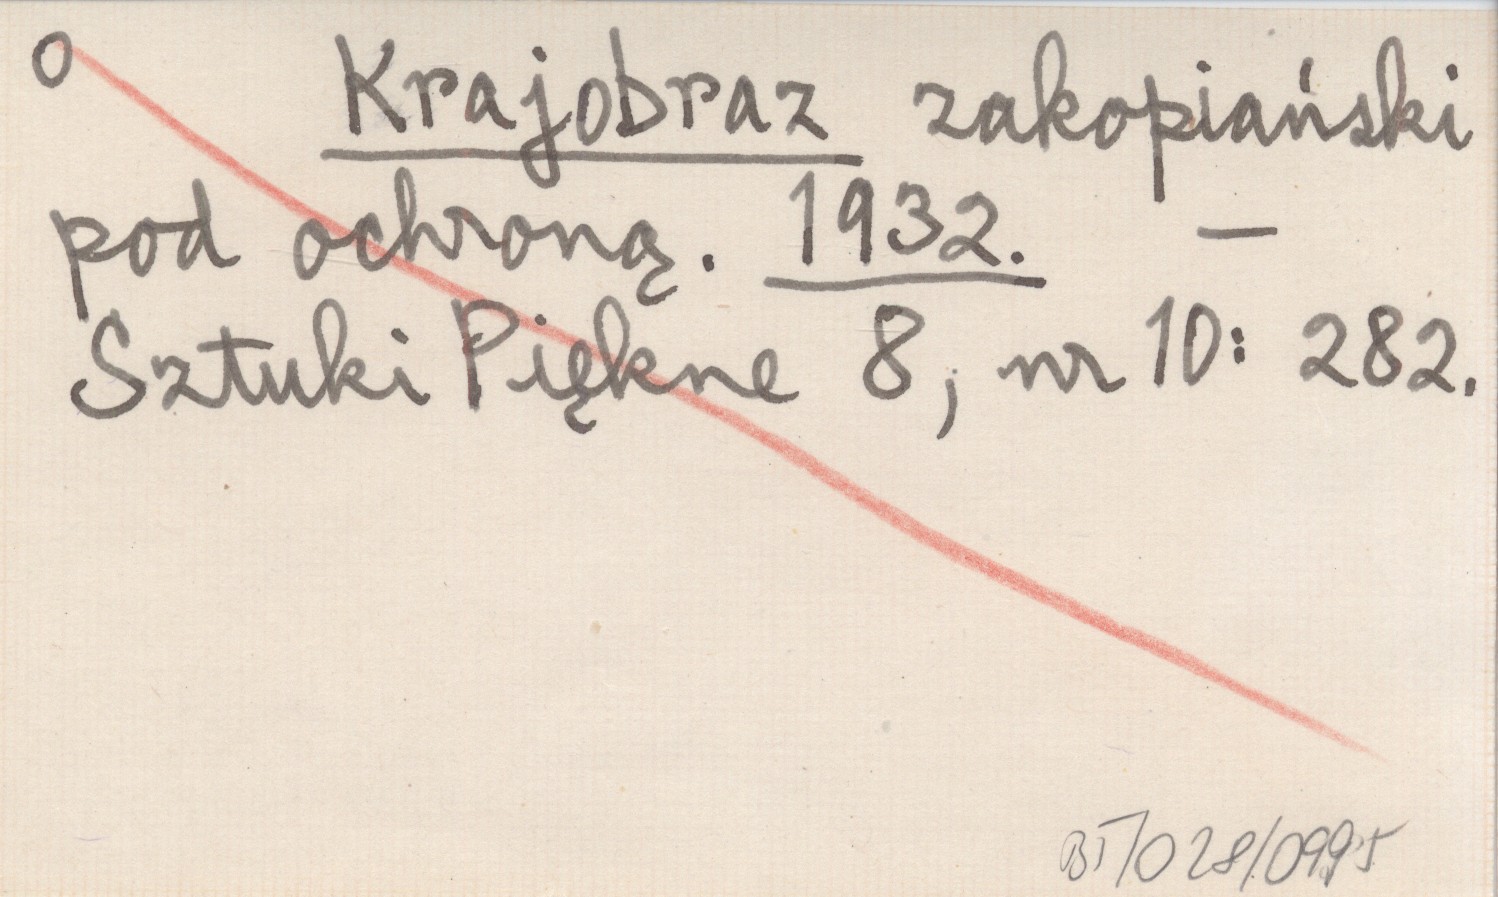 O Krajobraz zakopiański
pod ochroną. 1932. —
Sztuki Piękne 8, nr 10: 282.
BT/028/0995